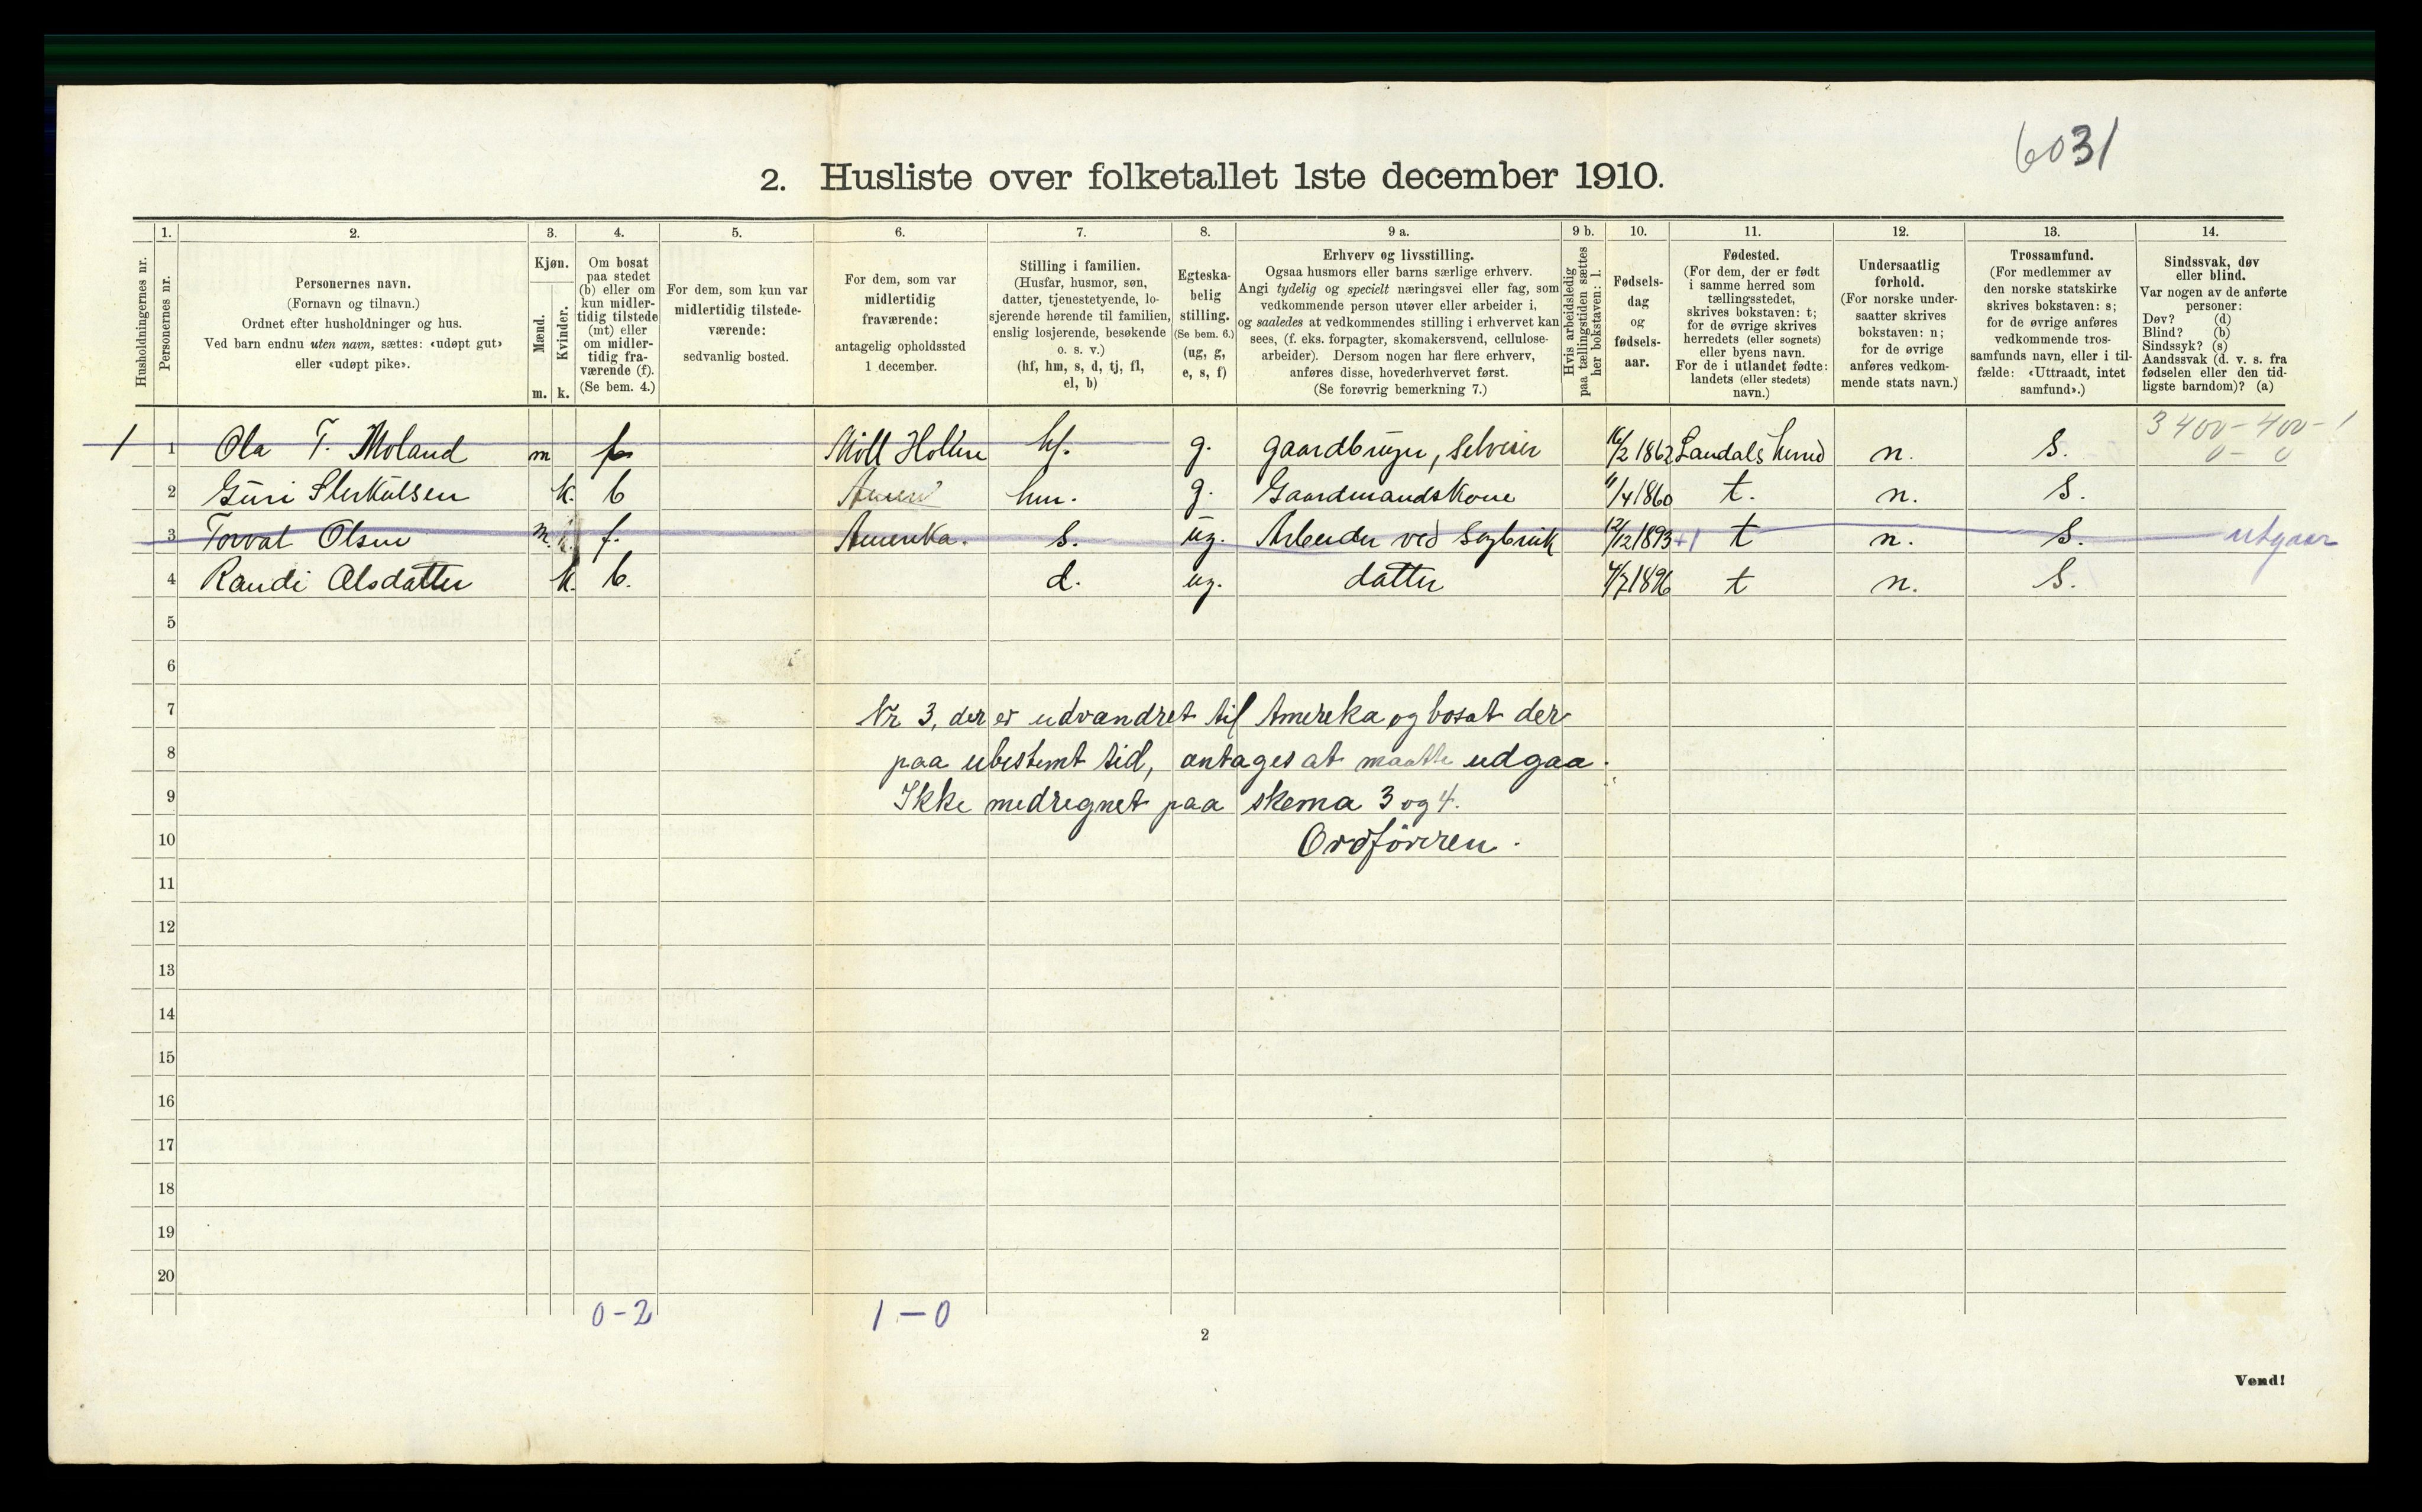 6031
2. Husliste over folketallet 1ste december 1910.
1. 2. 3. 4. 5. 6. 7. 8. 9 a. 9 b. 10. 11. 12. 13. 14.
Husholdningernes nr.
Personernes nr.
Personernes navn.
(Fornavn og tilnavn.)
Ordnet efter husholdninger og hus.
Ved barn endnu uten navn, sættes: «udøpt gut»
eller «udøpt pike».
Kjøn.
Mænd.
Kvinder.
m. k.
Om bosat
paa stedet
(b) eller om
kun midler-
tidig tilstede
(mt) eller
om midler-
tidig fra-
værende (f).
(Se bem. 4.)
For dem, som kun var
midlertidig tilstede-
værende:
sedvanlig bosted.
For dem, som var
midlertidig
fraværende:
antagelig opholdssted
1 december.
Stilling i familien.
(Husfar, husmor, søn,
datter, tjenestetyende, lo-
sjerende hørende til familien,
enslig losjerende, besøkende
o. s. v.)
(hf, hm, s, d, tj, fl,
el, b)
Egteska-
belig
stilling.
(Se bem. 6.)
(ug, g,
e, s, f)
Erhverv og livsstilling.
Ogsaa husmors eller barns særlige erhverv.
Angi tydelig og specielt næringsvei eller fag, som
vedkommende person utøver eller arbeider i,
og saaledes at vedkommendes stilling i erhvervet kan
sees, (f. eks. forpagter, skomakersvend, cellulose-
arbeider). Dersom nogen har flere erhverv,
anføres disse, hovederhvervet først.
(Se forøvrig bemerkning 7.)
Hvis arbeidsledig
paa tællingstiden sættes
her bokstaven: l.
Fødsels-
dag
og
fødsels-
aar.
Fødested.
(For dem, der er født
i samme herred som
tællingsstedet,
skrives bokstaven: t;
for de øvrige skrives
herredets (eller sognets)
eller byens navn.
For de i utlandet fødte:
landets (eller stedets)
navn.)
Undersaatlig
forhold.
(For norske under-
saatter skrives
bokstaven: n;
for de øvrige
anføres vedkom-
mende stats navn.)
Trossamfund.
(For medlemmer av
den norske statskirke
skrives bokstaven: s;
for de øvrige anføres
vedkommende tros-
samfunds navn, eller i til-
fælde: «Uttraadt, intet
samfund».)
Sindssvak, døv
eller blind.
Var nogen av de anførte
personer:
Døv? (d)
Blind? (b)
Sindssyk? (s)
Aandssvak (d. v. s. fra
fødselen eller den tid-
ligste barndom)? (a)
3400-400-1
0-0
1 1 Ola T. Moland m f hf. g. gaardbruger, Selveier 16/2 1862 Landals herred n. S.
2 Guri k. b hm. g. Gaardmandskone 11/4 1860 t. n. S.
3 Torval Olsen m. f. Amerika. s. ug. Arbeider ved 12/12 1893 +1 t n. S. utgaar
4 Randi Olsdatter k. b. d. ug. datter 4/7 1896 t n. S.
5
6
7 Nr 3, der er udvandret til Amereka og bosat der
8 paa ubestemt tid, antages at maatte udgaa.
9 Ikke medregnet paa skema 3 og 4.
10 Ordføreren.
11
12
13
14
15
16
17
18
19
20
0-2 1-0
2
Vend!